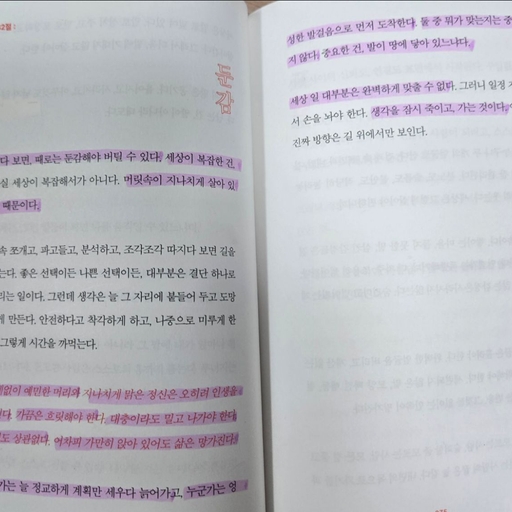 둔감
다 보면, 때로는 둔감해야 버틸 수 있다. 세상이 복잡한 건,
실 세상이 복잡해서가 아니다. 머릿속이 지나치게 살아 있
때문이다.
속 쪼개고, 파고들고, 분석하고, 조각조각 따지다 보면 길을
는다. 좋은 선택이든 나쁜 선택이든, 대부분은 결단 하나로
라는 일이다. 그런데 생각은 늘 그 자리에 붙들어 두고 도망
게 만든다. 안전하다고 착각하게 하고, 나중으로 미루게 한
그렇게 시간을 까먹는다.
없이 예민한 머리와 지나치게 맑은 정신은 오히려 인생을
다. 가끔은 흐릿해야 한다. 대충이라도 밀고 나가야 한다.
도 상관없다. 어차피 가만히 앉아 있어도 삶은 망가진다.
가는 늘 정교하게 계획만 세우다 늙어가고, 누군가는 엉
성한 발걸음으로 먼저 도착한다. 둘 중 뭐가 맞는지는 중
지 않다. 중요한 건, 발이 땅에 닿아 있느냐다.
세상 일 대부분은 완벽하게 맞출 수 없다. 그러니 일정
서 손을 놔야 한다. 생각을 잠시 죽이고, 가는 것이다.
진짜 방향은 길 위에서만 보인다.